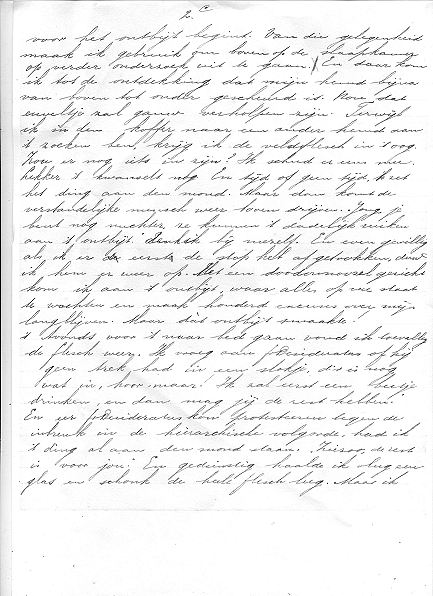 2.
voor het ontbijt begint. Van die gelegenheid
maak ik gebruik om boven op de slaapkamer
op verder onderzoek uit te gaan. En daar kom
ik tot de ontdekking dat mijn hemd bijna
van boven tot onder gescheurd is. Nou dat
euveltje zal gauw verholpen zijn. Terwijl
ik in den koffer naar een ander hemd aan
't zoeken ben, krijg ik de veldflesch in 't oog.
Zou er nog iets in zijn? Ik schud er eens mee.
Lekker 't kwanselt nog. En tijd of geen tijd, ik zet
het ding aan den mond. Maar dan komt de
verstandelijke mensch weer boven drijven. Jong, je
bent nog nuchter, ze kunnen 't dadelijk ruiken
aan 't ontbijt. Denk ik bij mezelf. En even gewillig
als ik er eerst de stop heb af getrokken, duw
ik hem er weer op. Met een doodonnoozel gezicht
kom ik aan 't ontbijt, waar alles op me staat
te wachten en maak honderd excuses over mijn
lang blijven. Maar dat ontbijt smaakte!
't Avonds voor 't naar bed gaan vond ik toevallig
de flesch weer. Ik vroeg aan Desideratus of hij
geen trek had in een slokje, d'r is nog
wat in, hoor maar! Ik zal eerst een beetje
drinken, en dan mag jij de rest hebben.
En eer Desideratus kon protesteeren tegen de
inbreuk in de hiërarchische volgorde, had ik
't ding al aan den mond staan. Ziezoo, de rest
is voor jou! En gedienstig haalde ik nog een
glas en schonk de heele flesch leeg. Maar ik